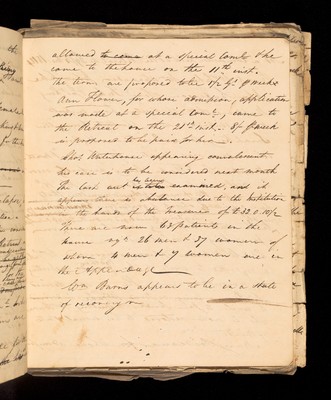 allowed to come at a special comte She
came to the house on the 11th inst.
The terms are proposed to be 1/2 Gs p Week
Ann Flower, for whose admission, application
was made at a special Come, came to
the Retreat on the 21st inst. 8/ a week
is proposed to be paid for her
Thos Waterhouse appearing convalescent
his case is to be considered next month
The cash acct being examined, and it
appears there is a balance due to the Institution
in the hands of the Treasurer of £32
There are now 63 patients in the
house vizt 26 men & 37 women of
whom 4 men & 7 women are in
the Appendage
Wm Burns appears to be in a state
of recovery